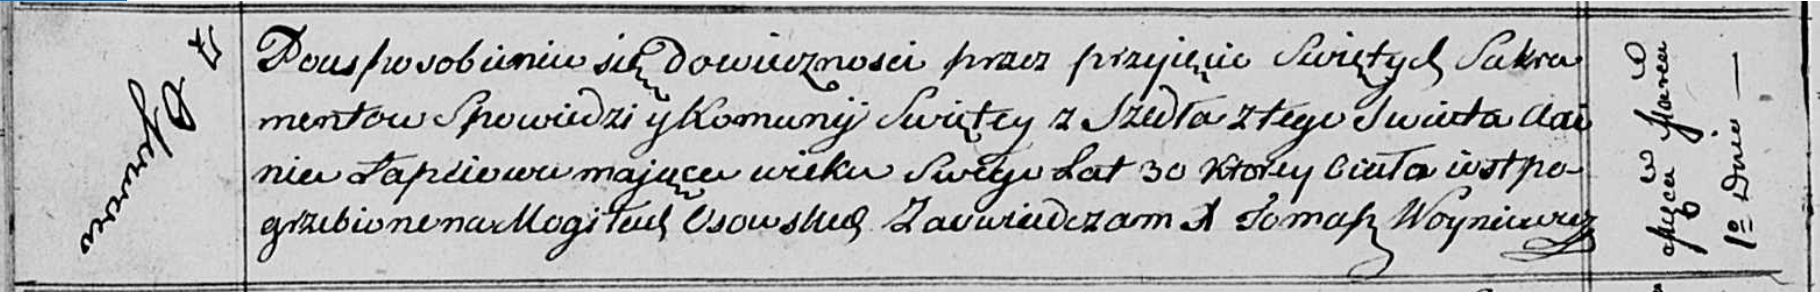 z Osowa
Po usposobieniu się Dowieczności przez przyięcie Swiętych Sakra
mentow Spowiedzi y Komunij Swiętey z Szedła z tego Swiata
nia Łapciowa maiąca wieku Swego Lat 30 ktorey Ciało iest po-
grzebione na Mogiłach Osowskich Zaswiadczam X Tomasz Woyniewicz
Marca
1º Dnia